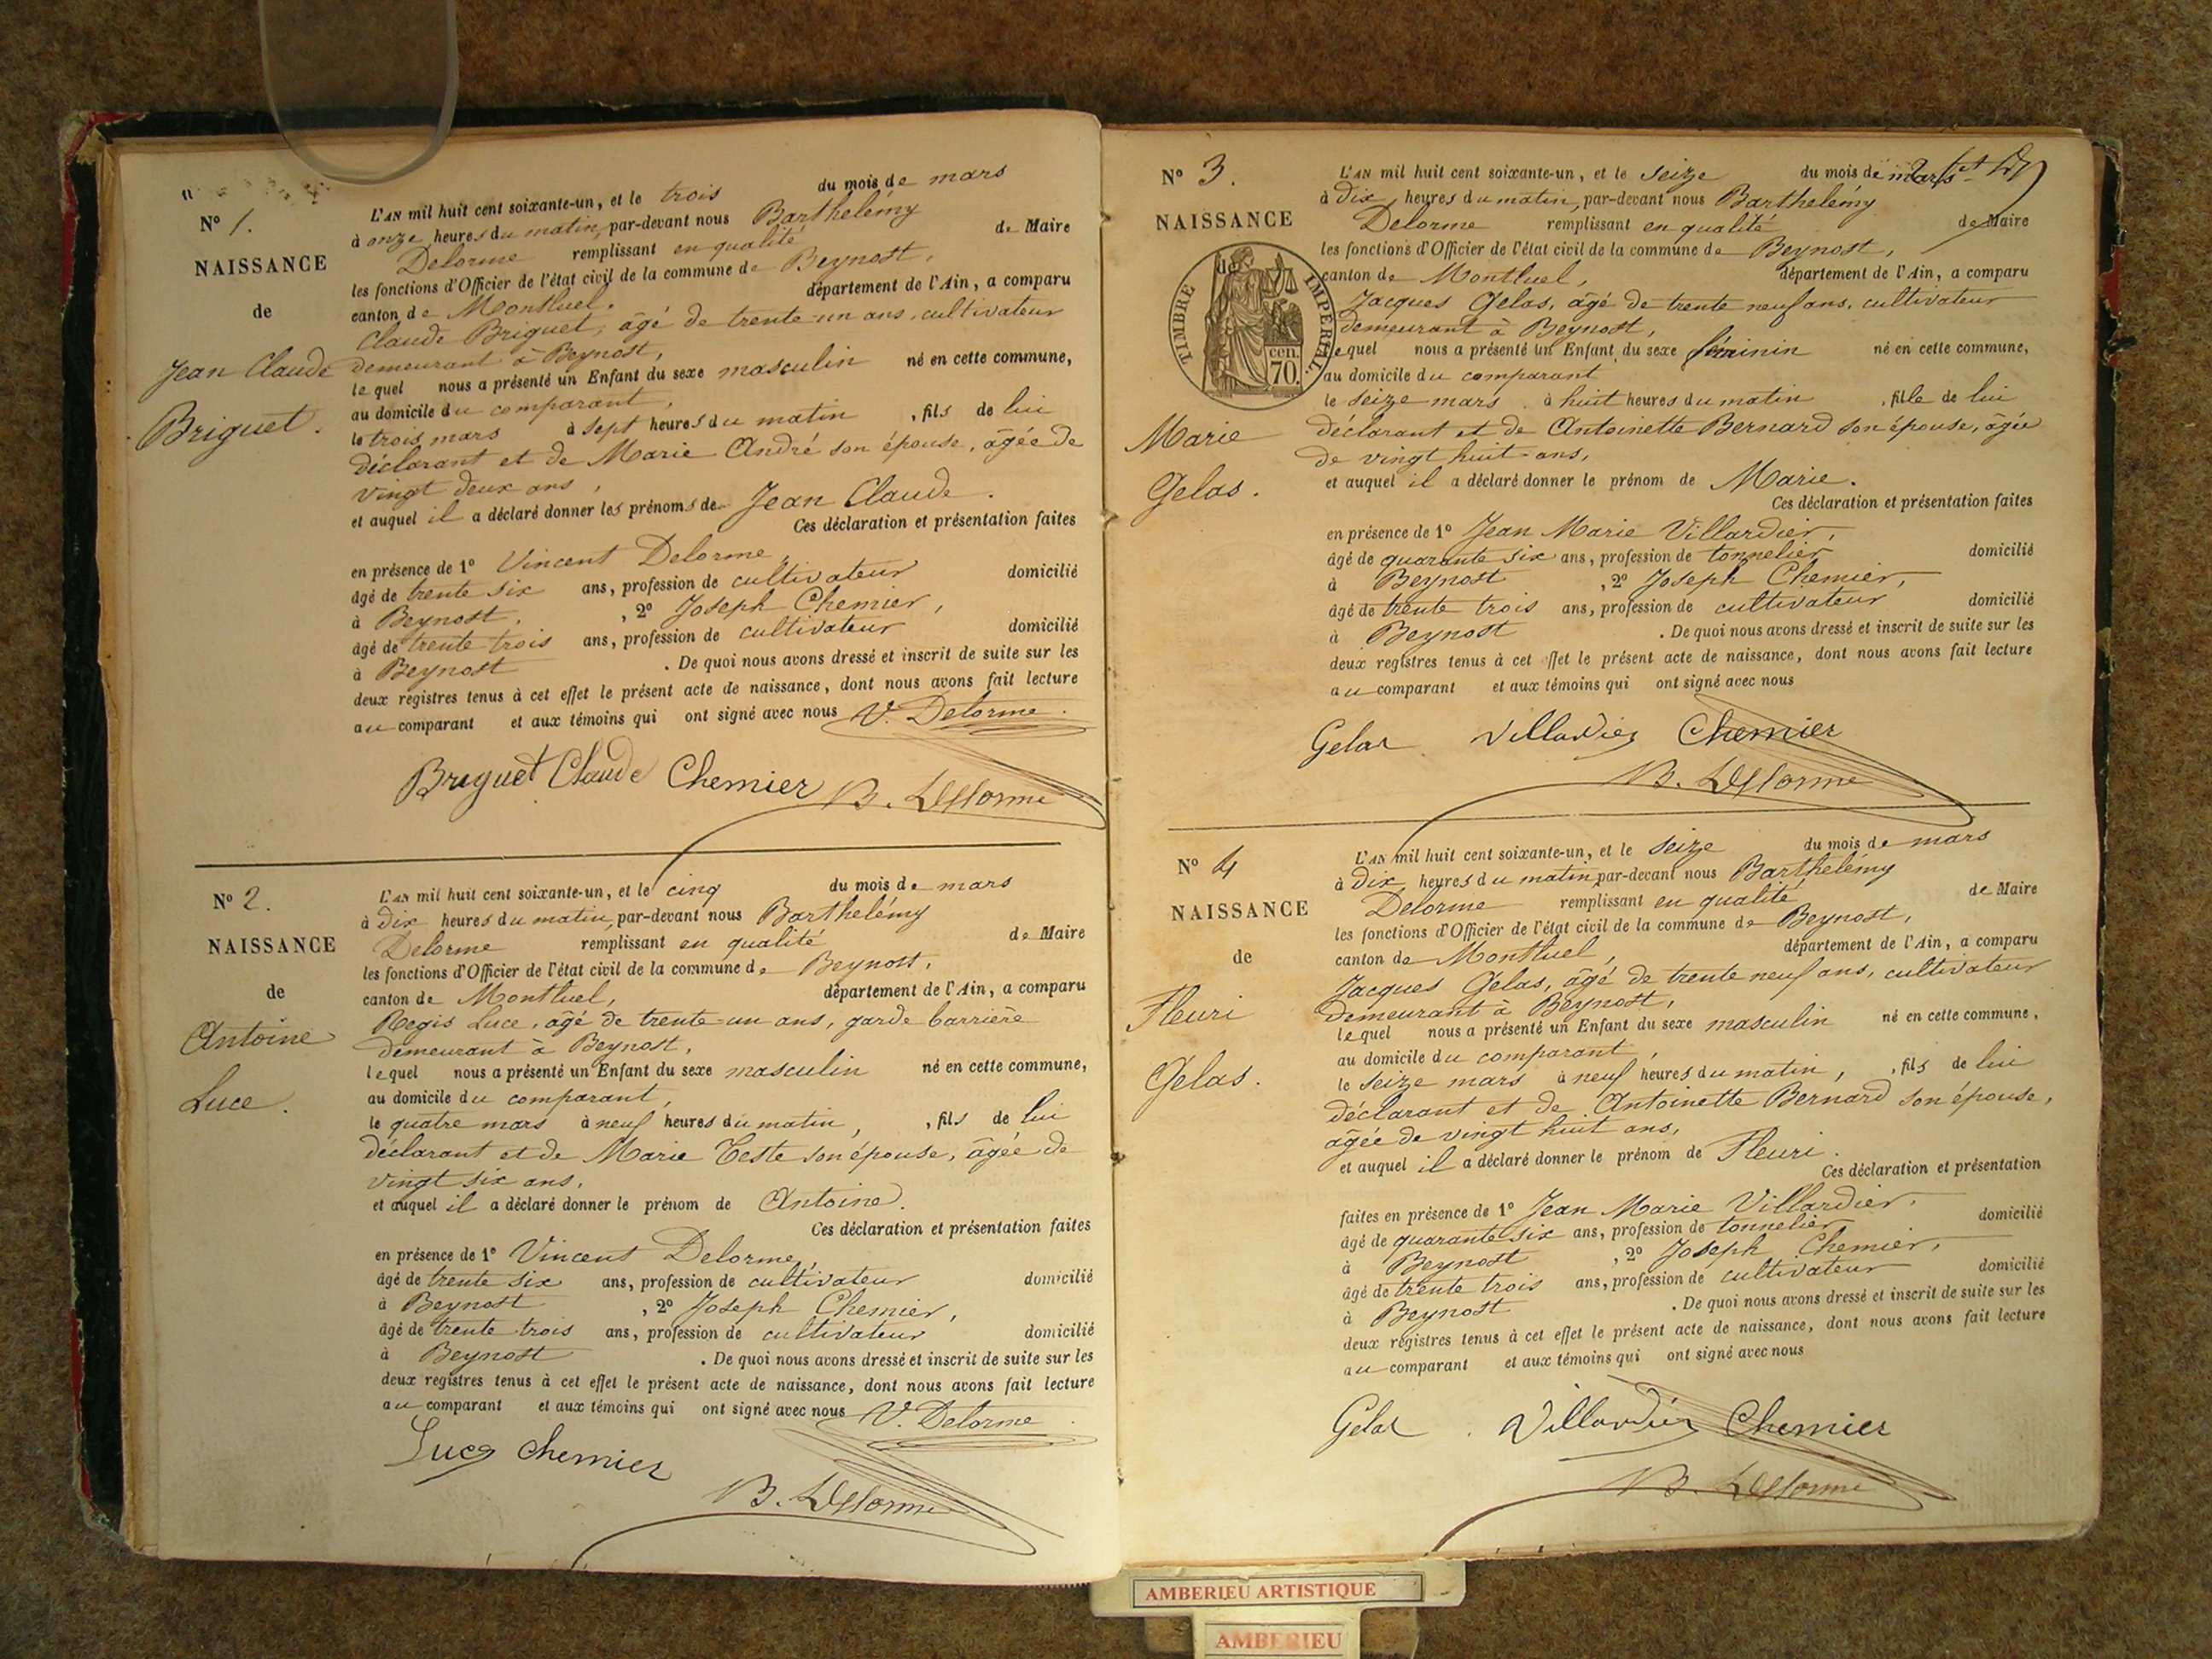 N° 1.
NAISSANCE
de
Jean Claude
Briguet.
L'AN mil huit cent soixante-un, et le trois du mois de mars
à onze heures du matin, par-devant nous Barthelémy
Delorme remplissant en qualité de Maire
les fonctions d'Officier de l'état civil de la commune de Beynost,
canton de Montluel, département de l'Ain, a comparu
Claude Briguet, âgé de trente-un ans, cultivateur
demeurant à Beynost,
lequel nous a présenté un Enfant du sexe masculin né en cette commune,
au domicile du comparant,
le trois mars à sept heures du matin , fils de lui
déclarant et de Marie André son épouse, âgée de
vingt deux ans,
et auquel il a déclaré donner les prénoms de Jean Claude.
Ces déclaration et présentation faites
en présence de 1° Vincent Delorme,
âgé de trente six ans, profession de cultivateur domicilié
à Beynost, , 2° Joseph Chemier,
âgé de trente trois ans, profession de cultivateur domicilié
à Beynost . De quoi nous avons dressé et inscrit de suite sur les
deux registres tenus à cet effet le présent acte de naissance, dont nous avons fait lecture
au comparant et aux témoins qui ont signé avec nous V. Delorme.
Briguet Claude Chemier B. Delorme
N° 2.
NAISSANCE
de
Antoine
Luce.
L'AN mil huit cent soixante-un, et le cinq du mois de mars
à dix heures du matin, par-devant nous Barthelémy
Delorme remplissant en qualité de Maire
les fonctions d'Officier de l'état civil de la commune de Beynost,
canton de Montluel, département de l'Ain, a comparu
Regis Luce, âgé de trente-un ans, garde barrière
demeurant à Beynost,
lequel nous a présenté un Enfant du sexe masculin né en cette commune,
au domicile du comparant,
le quatre mars à neuf heures du matin, , fils de lui
déclarant et de Marie Teste son épouse, âgée de
vingt six ans,
et auquel il a déclaré donner le prénom de Antoine.
Ces déclaration et présentation faites
en présence de 1° Vincent Delorme,
âgé de trente six ans, profession de cultivateur domicilié
à Beynost , 2° Joseph Chemier,
âgé de trente trois ans, profession de cultivateur domicilié
à Beynost . De quoi nous avons dressé et inscrit de suite sur les
deux registres tenus à cet effet le présent acte de naissance, dont nous avons fait lecture
au comparant et aux témoins qui ont signé avec nous V. Delorme
Luce Chemier
B. Delorme
N° 3.
NAISSANCE
de
TIMBRE IMPERIAL.
70. cen.
Marie
Gelas.
L'AN mil huit cent soixante-un, et le seize du mois de mars
à dix heures du matin, par-devant nous Barthelémy
Delorme remplissant en qualité de Maire
les fonctions d'Officier de l'état civil de la commune de Beynost,
canton de Montluel, département de l'Ain, a comparu
Jacques Gelas, âgé de trente neuf ans, cultivateur
demeurant à Beynost,
lequel nous a présenté un Enfant du sexe féminin né en cette commune,
au domicile du comparant
le seize mars à huit heures du matin , fille de lui
déclarant et de Antoinette Bernard son épouse, âgée
de vingt huit ans,
et auquel il a déclaré donner le prénom de Marie.
Ces déclaration et présentation faites
en présence de 1° Jean Marie Villardier,
âgé de quarante six ans, profession de tonnelier domicilié
à Beynost , 2° Joseph Chemier,
âgé de trente trois ans, profession de cultivateur domicilié
à Beynost . De quoi nous avons dressé et inscrit de suite sur les
deux registres tenus à cet effet le présent acte de naissance, dont nous avons fait lecture
au comparant et aux témoins qui ont signé avec nous
Gelas Villardier Chemier
B. Delorme
N° 4
NAISSANCE
de
Fleuri
Gelas.
L'AN mil huit cent soixante-un, et le seize du mois de mars
à dix heures du matin, par-devant nous Barthelémy
Delorme remplissant en qualité de Maire
les fonctions d'Officier de l'état civil de la commune de Beynost,
canton de Montluel, département de l'Ain, a comparu
Jacques Gelas, âgé de trente neuf ans, cultivateur
demeurant à Beynost,
lequel nous a présenté un Enfant du sexe masculin né en cette commune,
au domicile du comparant,
le seize mars à neuf heures du matin, , fils de lui
déclarant et de Antoinette Bernard son épouse,
âgée de vingt huit ans,
et auquel il a déclaré donner le prénom de Fleuri.
Ces déclaration et présentation
faites en présence de 1° Jean Marie Villardier,
âgé de quarante six ans, profession de tonnelier domicilié
à Beynost , 2° Joseph Chemier,
âgé de trente trois ans, profession de cultivateur domicilié
à Beynost . De quoi nous avons dressé et inscrit de suite sur les
deux registres tenus à cet effet le présent acte de naissance, dont nous avons fait lecture
au comparant et aux témoins qui ont signé avec nous
Gelas Villardier Chemier
B. Delorme
AMBERIEU ARTISTIQUE
AMBERIEU